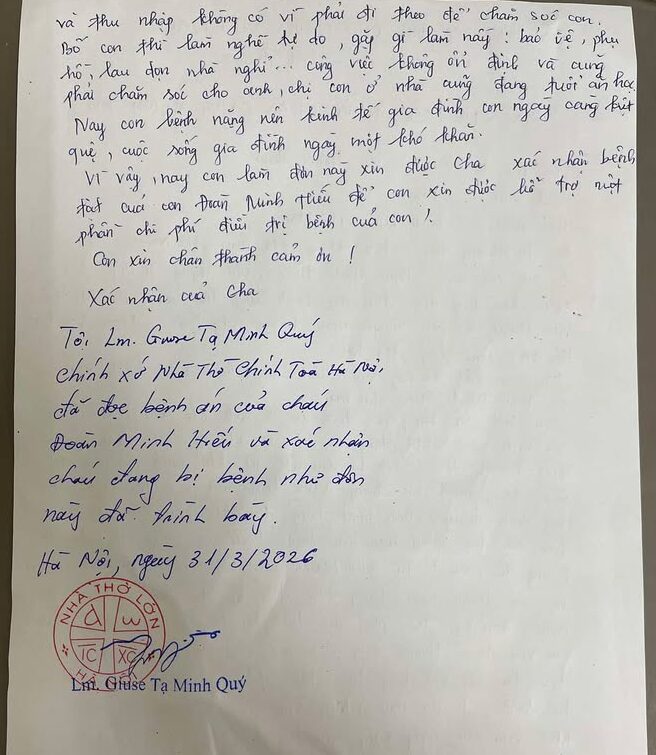 và thu nhập không có vì phải đi theo để chăm sóc con.
Bố con thì làm nghề tự do, gặp gì làm nấy: bảo vệ, phụ
hồ, lau dọn nhà nghỉ... công việc không ổn định và cũng
phải chăm sóc cho anh, chị con ở nhà cũng đang tuổi ăn học
Nay con bệnh nặng nên kinh tế gia đình con ngày càng kiệt
quệ, cuộc sống gia đình ngày một khó khăn.
Vì vậy, nay con làm đơn này xin được Cha xác nhận bệnh
tật của con Đoàn Minh Hiếu để con xin được hỗ trợ một
phần chi phí điều trị bệnh của con!
Con xin chân thành cảm ơn!
Xác nhận của Cha
Tôi, Lm. Giuse Tạ Minh Quý
Chính xứ Nhà Thờ Chính Toà Hà Nội,
đã đọc bệnh án của cháu
Đoàn Minh Hiếu và xác nhận
cháu đang bị bệnh như đơn
này đã trình bày.
Hà Nội, ngày 31/3/2026
NHÀ THỜ LỚN
α ω
IC XC
HÀ NỘI
Lm. Giuse Tạ Minh Quý